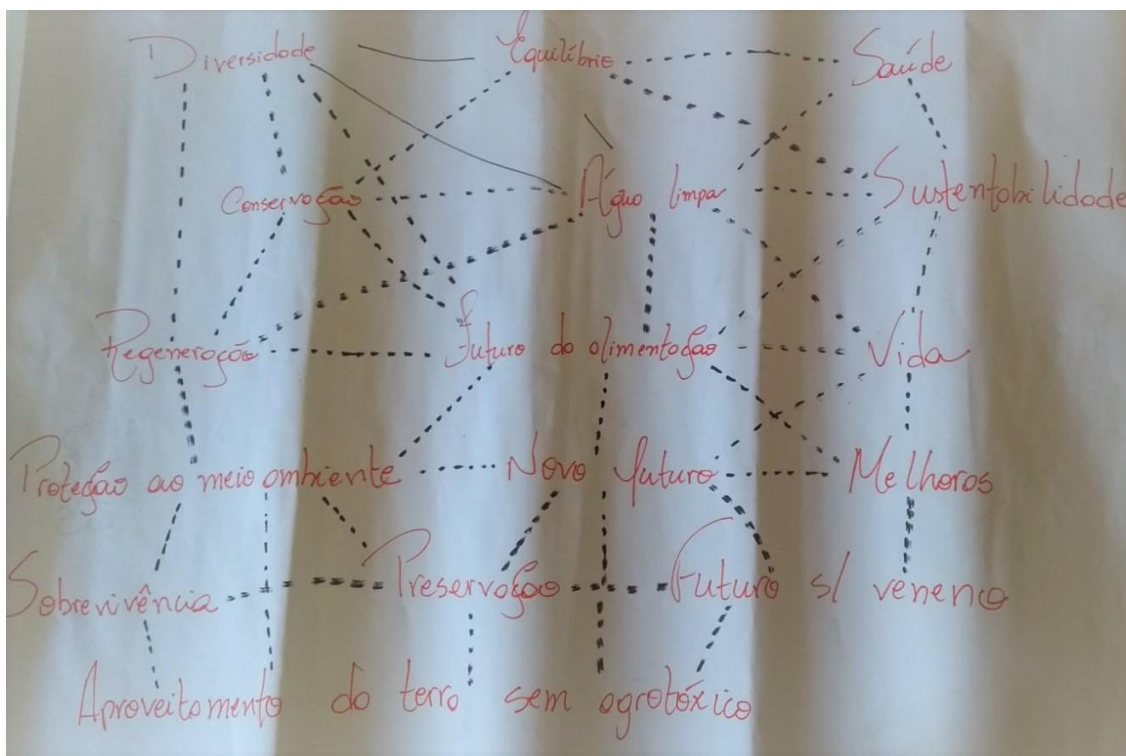 Diversidade Equilíbrio Saúde
Conservação Água limpa Sustentabilidade
Regeneração Futuro da alimentação Vida
Proteção ao meio ambiente Novo futuro Melhoras
Sobrevivência Preservação Futuro s/ veneno
Aproveitamento da terra sem agrotóxico